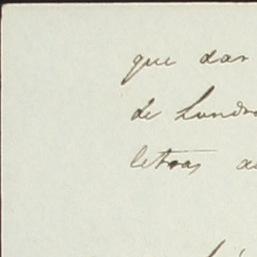 que dar
de Londr
letras a